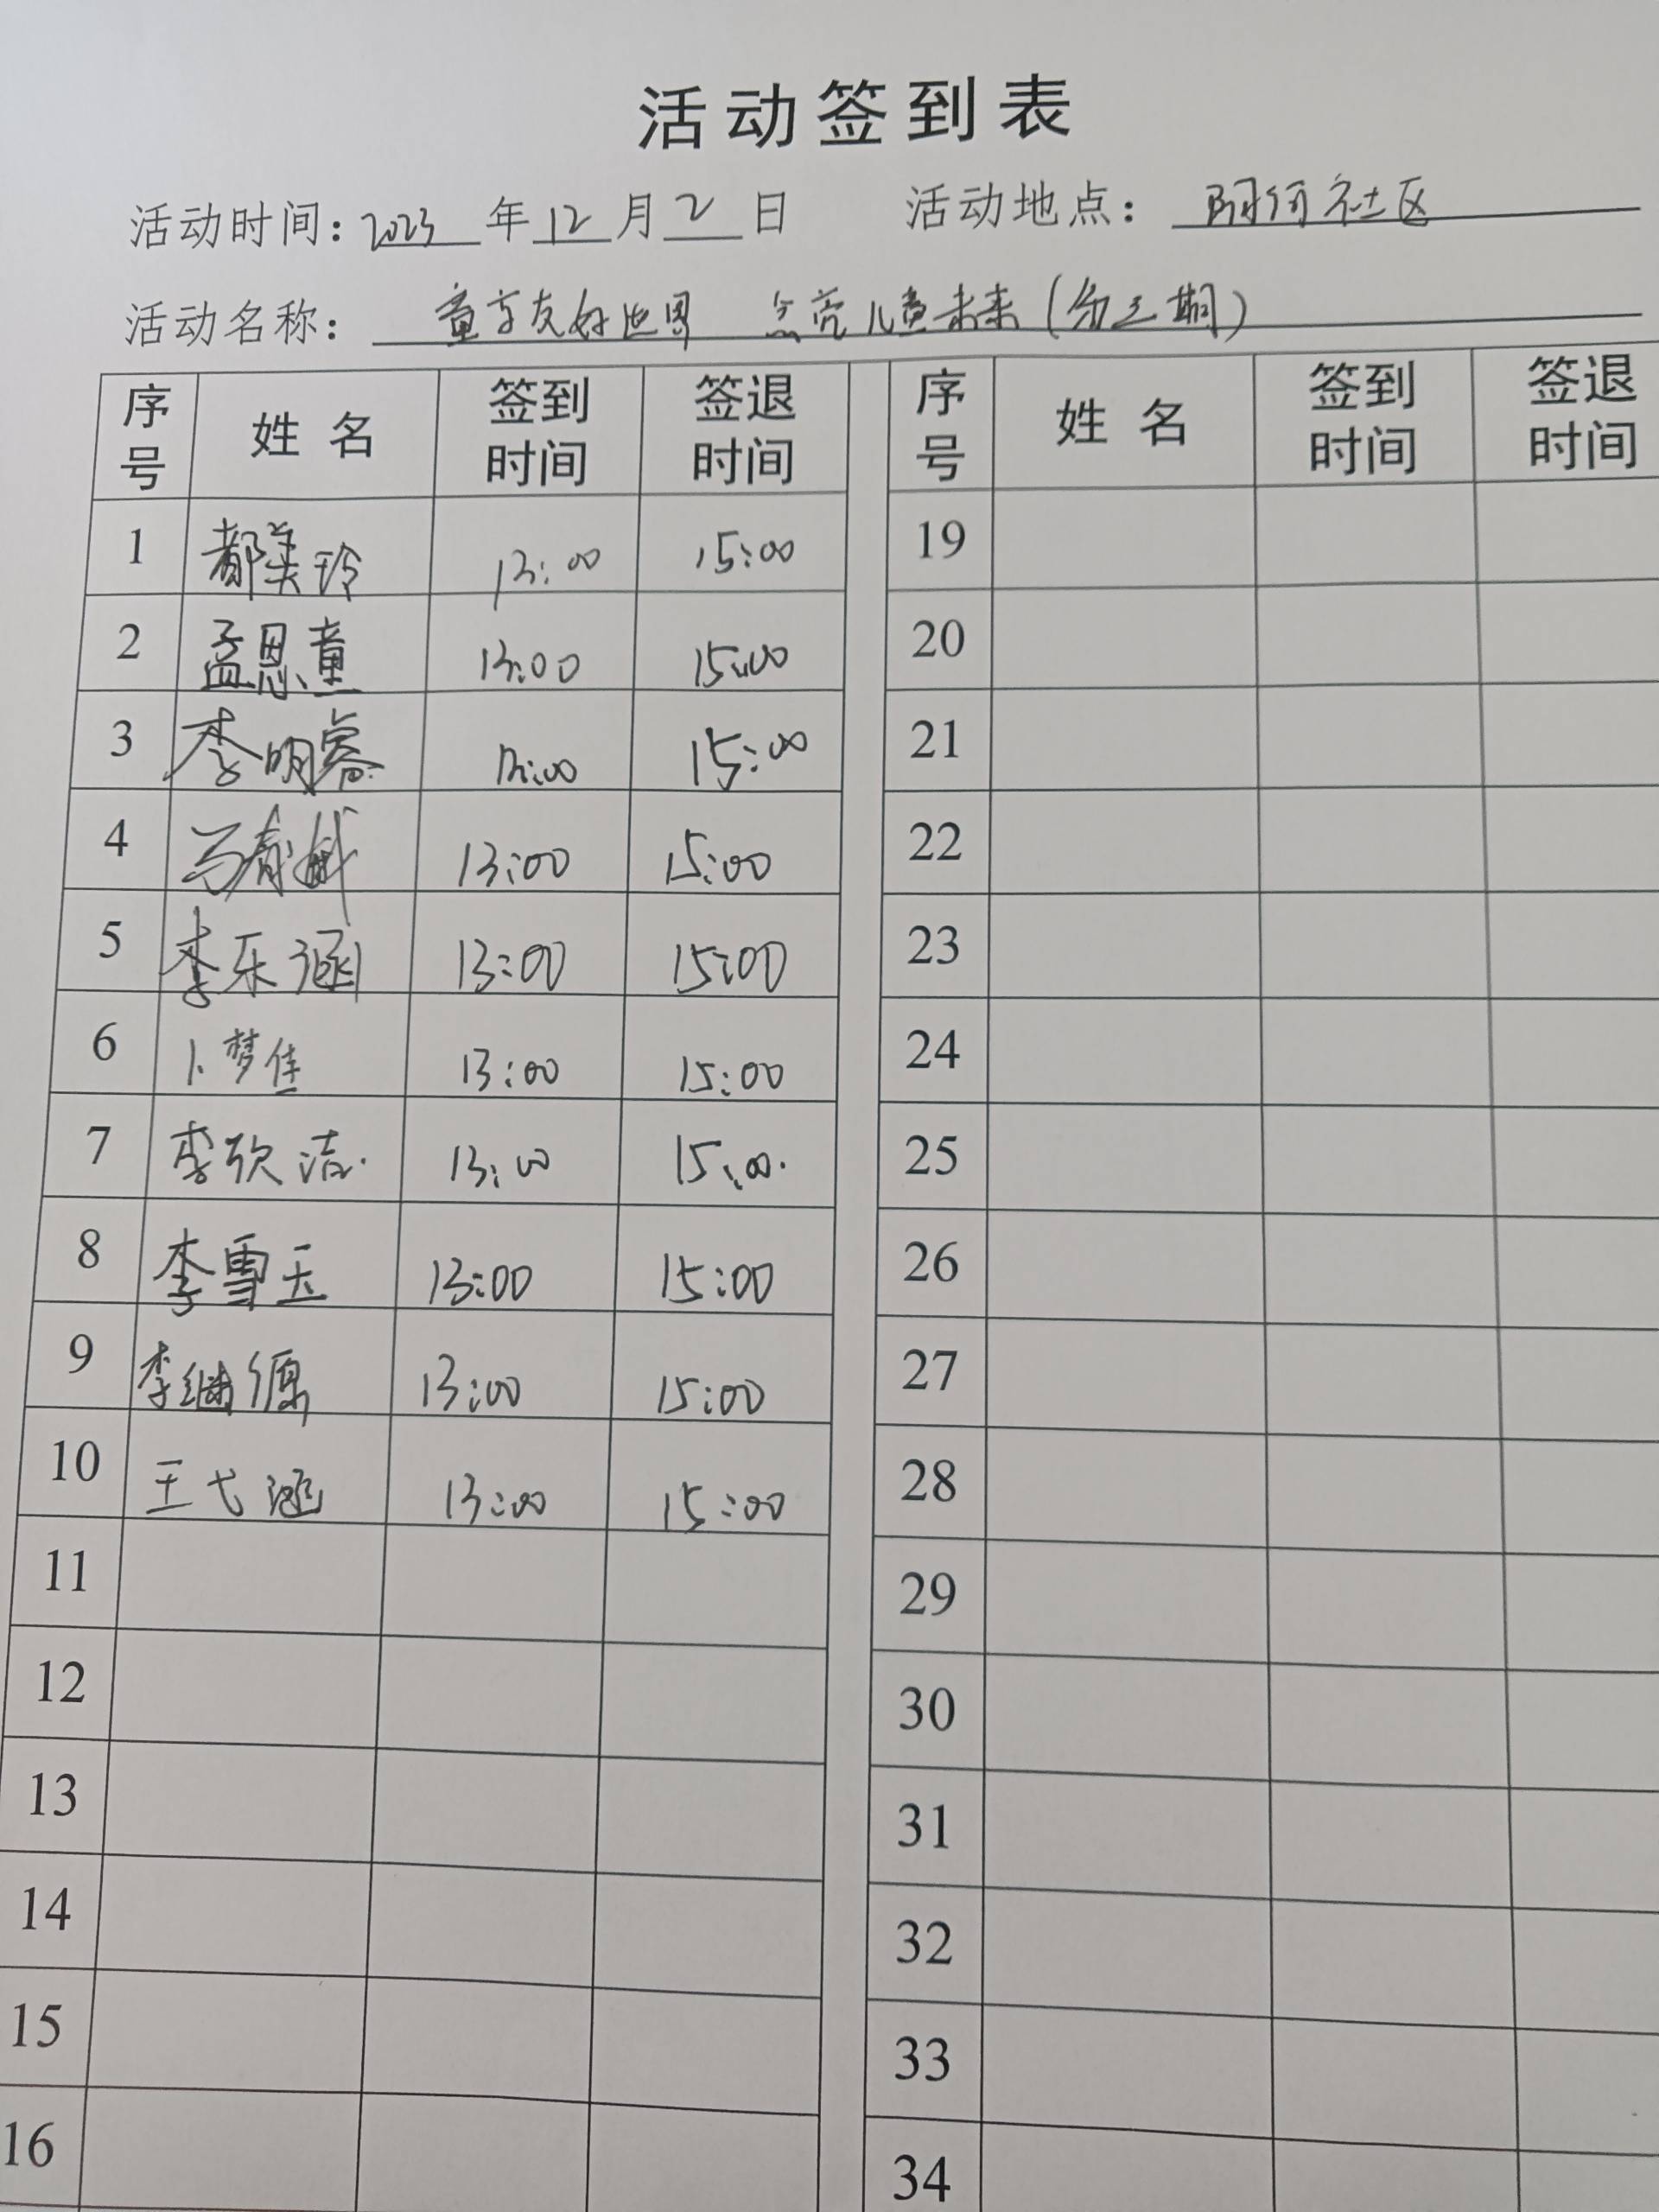 活动签到表
活动时间：2023年12月2日 活动地点：阿河社区
活动名称：童享友好世界 点亮儿童未来（第三期）
序号 姓名 签到时间 签退时间 序号 姓名 签到时间 签退时间
1 都美玲 13:00 15:00 19
2 孟恩童 13:00 15:00 20
3 李明睿 13:00 15:00 21
4 马春 13:00 15:00 22
5 李乐涵 13:00 15:00 23
6 卜梦佳 13:00 15:00 24
7 李欣洁 13:00 15:00 25
8 李雪玉 13:00 15:00 26
9 李继源 13:00 15:00 27
10 王弋涵 13:00 15:00 28
11 29
12 30
13 31
14 32
15 33
16 34